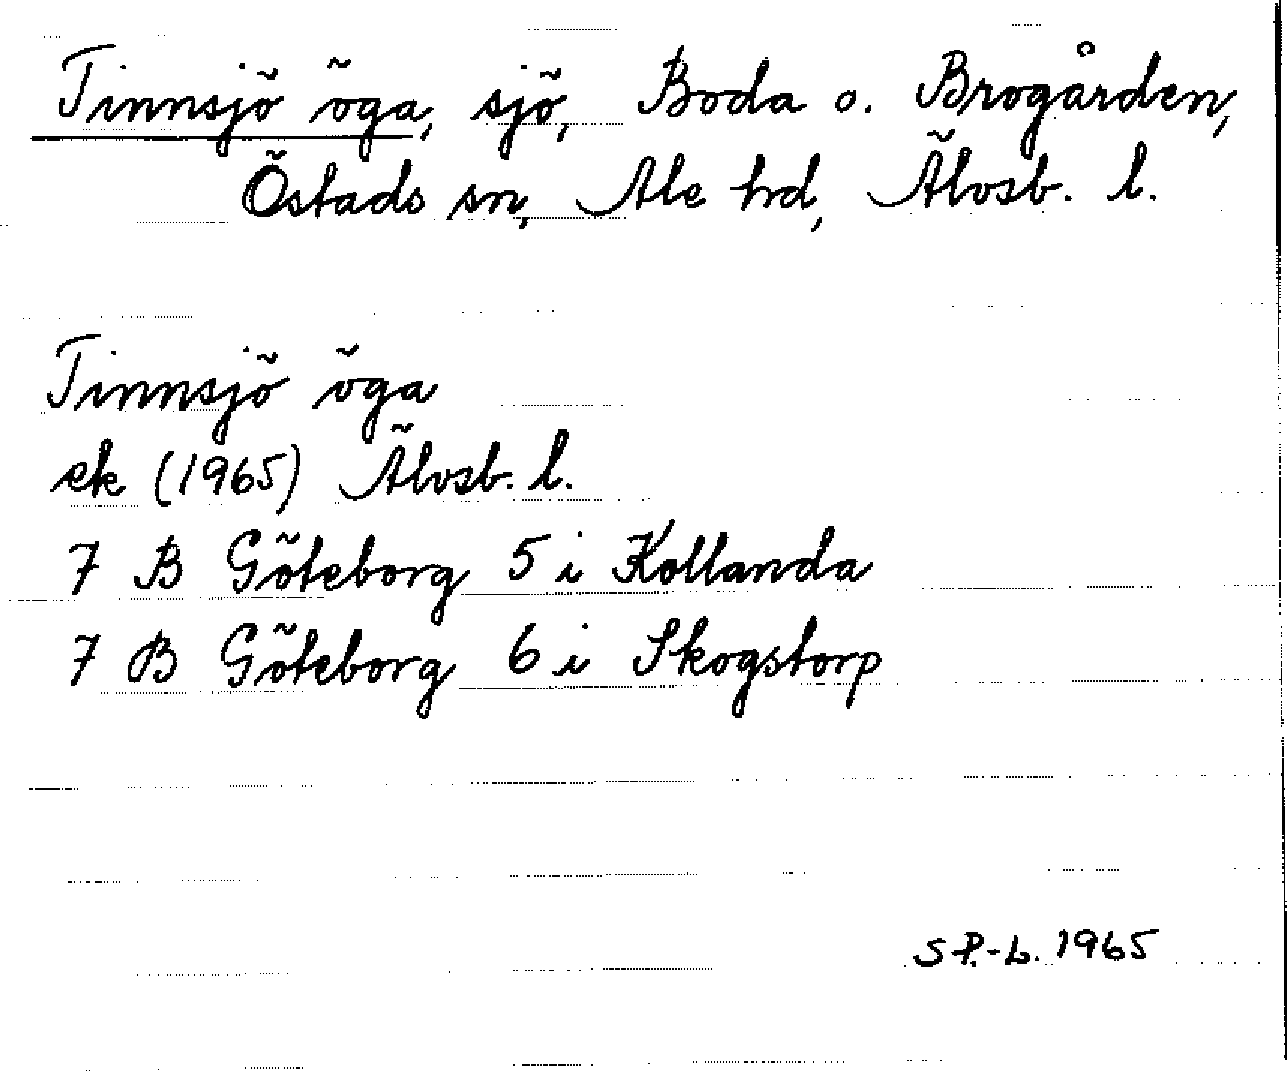 Tinnsjö öga, sjö, Boda o. Brogården,
Östads sn, Ale hd, Älvsb. l.
Tinnsjö öga
ek (1965) Älvsb. l.
7 B Göteborg 5 i Kollanda
7 B Göteborg 6 i Skogstorp
S P.-b. 1965